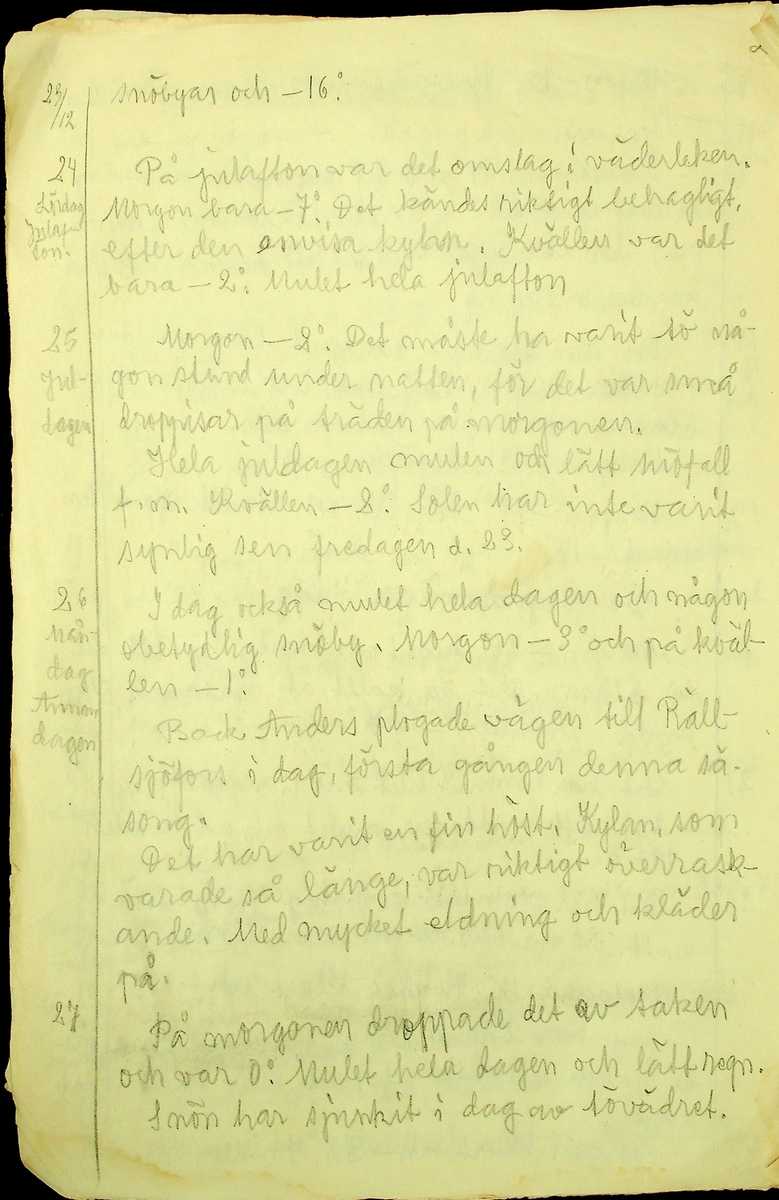 23/12 snöbyar och -16°.
24 På julafton var det omslag i väderleken.
Lördag Morgon bara -7°. Det kändes riktigt behagligt,
Julaf- efter den envisa kylan. Kvällen var det
ton. bara -2°. Mulet hela julafton
25 Morgon -2°. Det måste ha varit tö nå-
Jul- gon stund under natten, för det var små
dagen droppisar på träden på morgonen.
Hela juldagen mulen och lätt snöfall
f.m. Kvällen -2°. Solen har inte varit
synlig sen fredagen d. 23.
26 I dag också mulet hela dagen och någon
Mån- obetydlig snöby. Morgon -3° och på kväl-
dag len -1°.
Annan Back Anders plogade vägen till Räll-
dagen sjöfors i dag, första gången denna sä-
song.
Det har varit en fin höst. Kylan, som
varade så länge, var riktigt överrask-
ande. Med mycket eldning och kläder
på.
27 På morgonen droppade det av taken
och var 0°. Mulet hela dagen och lätt regn.
Snön har sjunkit i dag av tövädret.